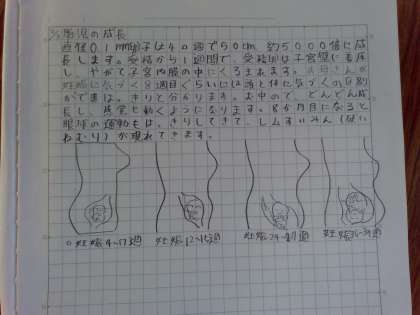 胎児の成長
直径0.1mm卵子は40週で50cm、約5000倍に成
長します。受精から1週間で、受精卵は子宮壁に着床
し、やがて子宮内膜の中にくるまれます。お母さんが
妊娠に気づく8週目ぐらいには頭と体に気づくの区別
ができ、はっきりと分かります。お中の中で、どんどん成
長し、活発に動くようになります。8か月目になると
眼球の運動もはっきりしてきて、レムすいみん(浅い
ねむり)が現れてきます。
妊娠4~17週 妊娠12~15週 妊娠24~27週 妊娠